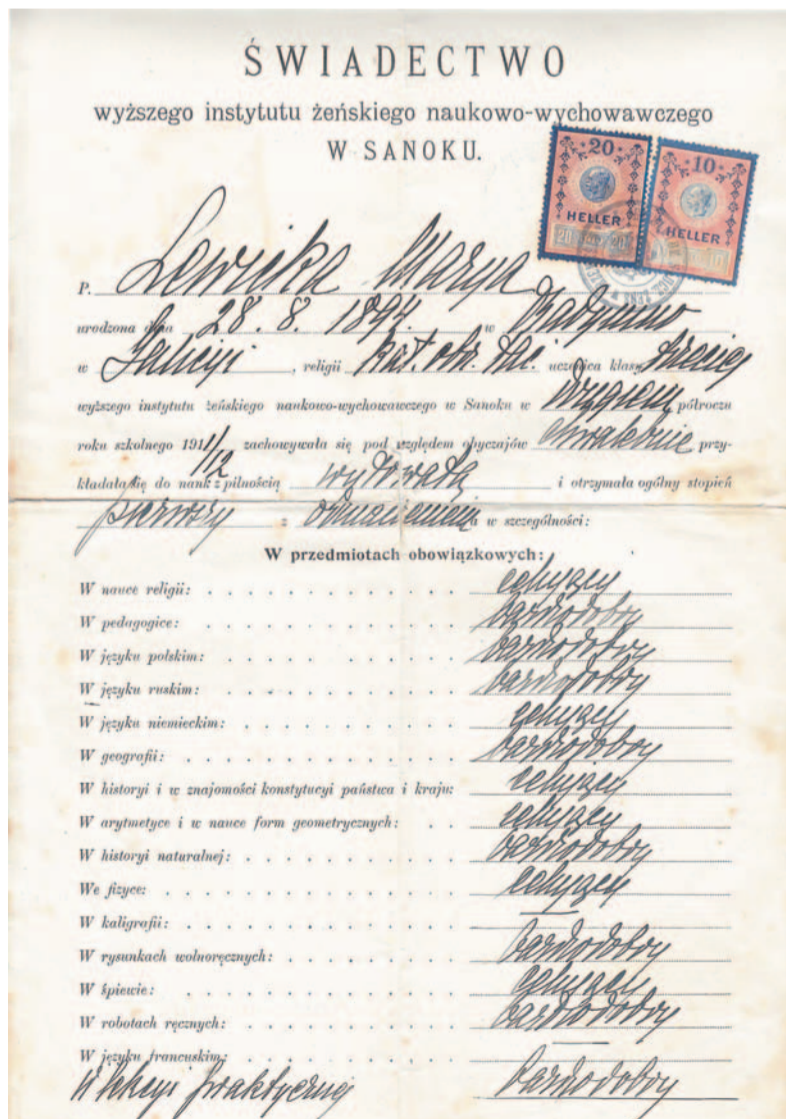 ŚWIADECTWO
wyższego instytutu żeńskiego naukowo-wychowawczego
W SANOKU.
20 10
HELLER HELLER
20 20 10
P. Lewicka Marya
urodzona dnia 28. 8. 1894. w Radymno
w Galicyi, religii kat. obr. łac. uczenica klasy trzeciej
wyższego instytutu żeńskiego naukowo-wychowawczego w Sanoku w drugiem półroczu
roku szkolnego 1911/12 zachowywała się pod względem obyczajów chwalebnie przy-
kładała się do nauk z pilnością wytrwałą i otrzymała ogólny stopień
pierwszy z odznaczeniem a w szczególności:
W przedmiotach obowiązkowych:
W nauce religii: celujący
W pedagogice: bardzo dobry
W języku polskim: bardzo dobry
W języku ruskim: bardzo dobry
W języku niemieckim: celujący
W geografii: bardzo dobry
W historyi i w znajomości konstytucyi państwa i kraju: celujący
W arytmetyce i w nauce form geometrycznych: celujący
W historyi naturalnej: bardzo dobry
We fizyce: celujący
W kaligrafii: —
W rysunkach wolnoręcznych: bardzo dobry
W śpiewie: celujący
W robotach ręcznych: bardzo dobry
W języku francuskim: —
W lekcyi praktycznej bardzo dobry